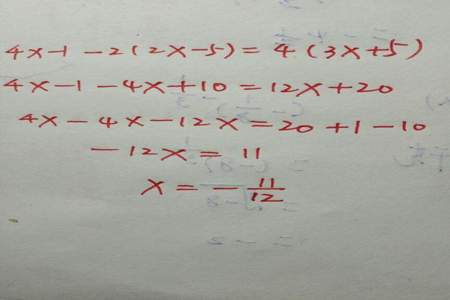 4x-1-2(2x-5)=4(3x+5)
4x-1-4x+10=12x+20
4x-4x-12x=20+1-10
-12x=11
x=-11/12